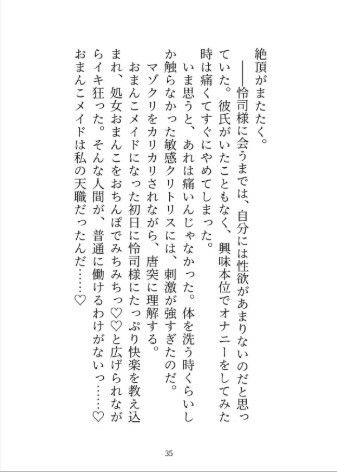 絶頂がまたたく。
――怜司様に会うまでは、自分には性欲があまりないのだと思っ
ていた。彼氏がいたこともなく、興味本位でオナニーをしてみた
時は痛くてすぐにやめてしまった。
いま思うと、あれは痛いんじゃなかった。体を洗う時くらいし
か触らなかった敏感クリトリスには、刺激が強すぎたのだ。
マゾクリをカリカリされながら、唐突に理解する。
おまんこメイドになった初日に怜司様にたっぷり快楽を教え込
まれ、処女おまんこをおちんぽでみちみちっ♡♡と広げられなが
らイキ狂った。そんな人間が、普通に働けるわけがないっ……♡
おまんこメイドは私の天職だったんだ……♡
35